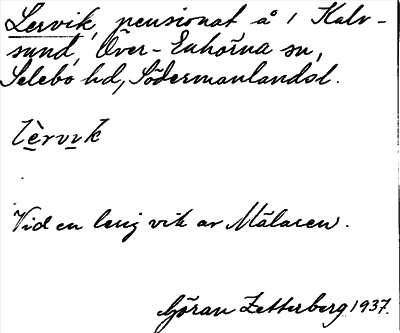 Lervik, pensionat å 1 Kalv-
sund, Över-Enhörna sn,
Selebo hd, Södermanlandsl.
lèrvik
Vid en lerig vik av Mälaren.
Göran Zetterberg 1937.